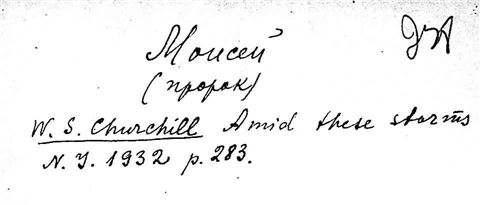 Моисей
(пророк)
W. S. Churchill Amid these storms
N. Y. 1932 p. 283.